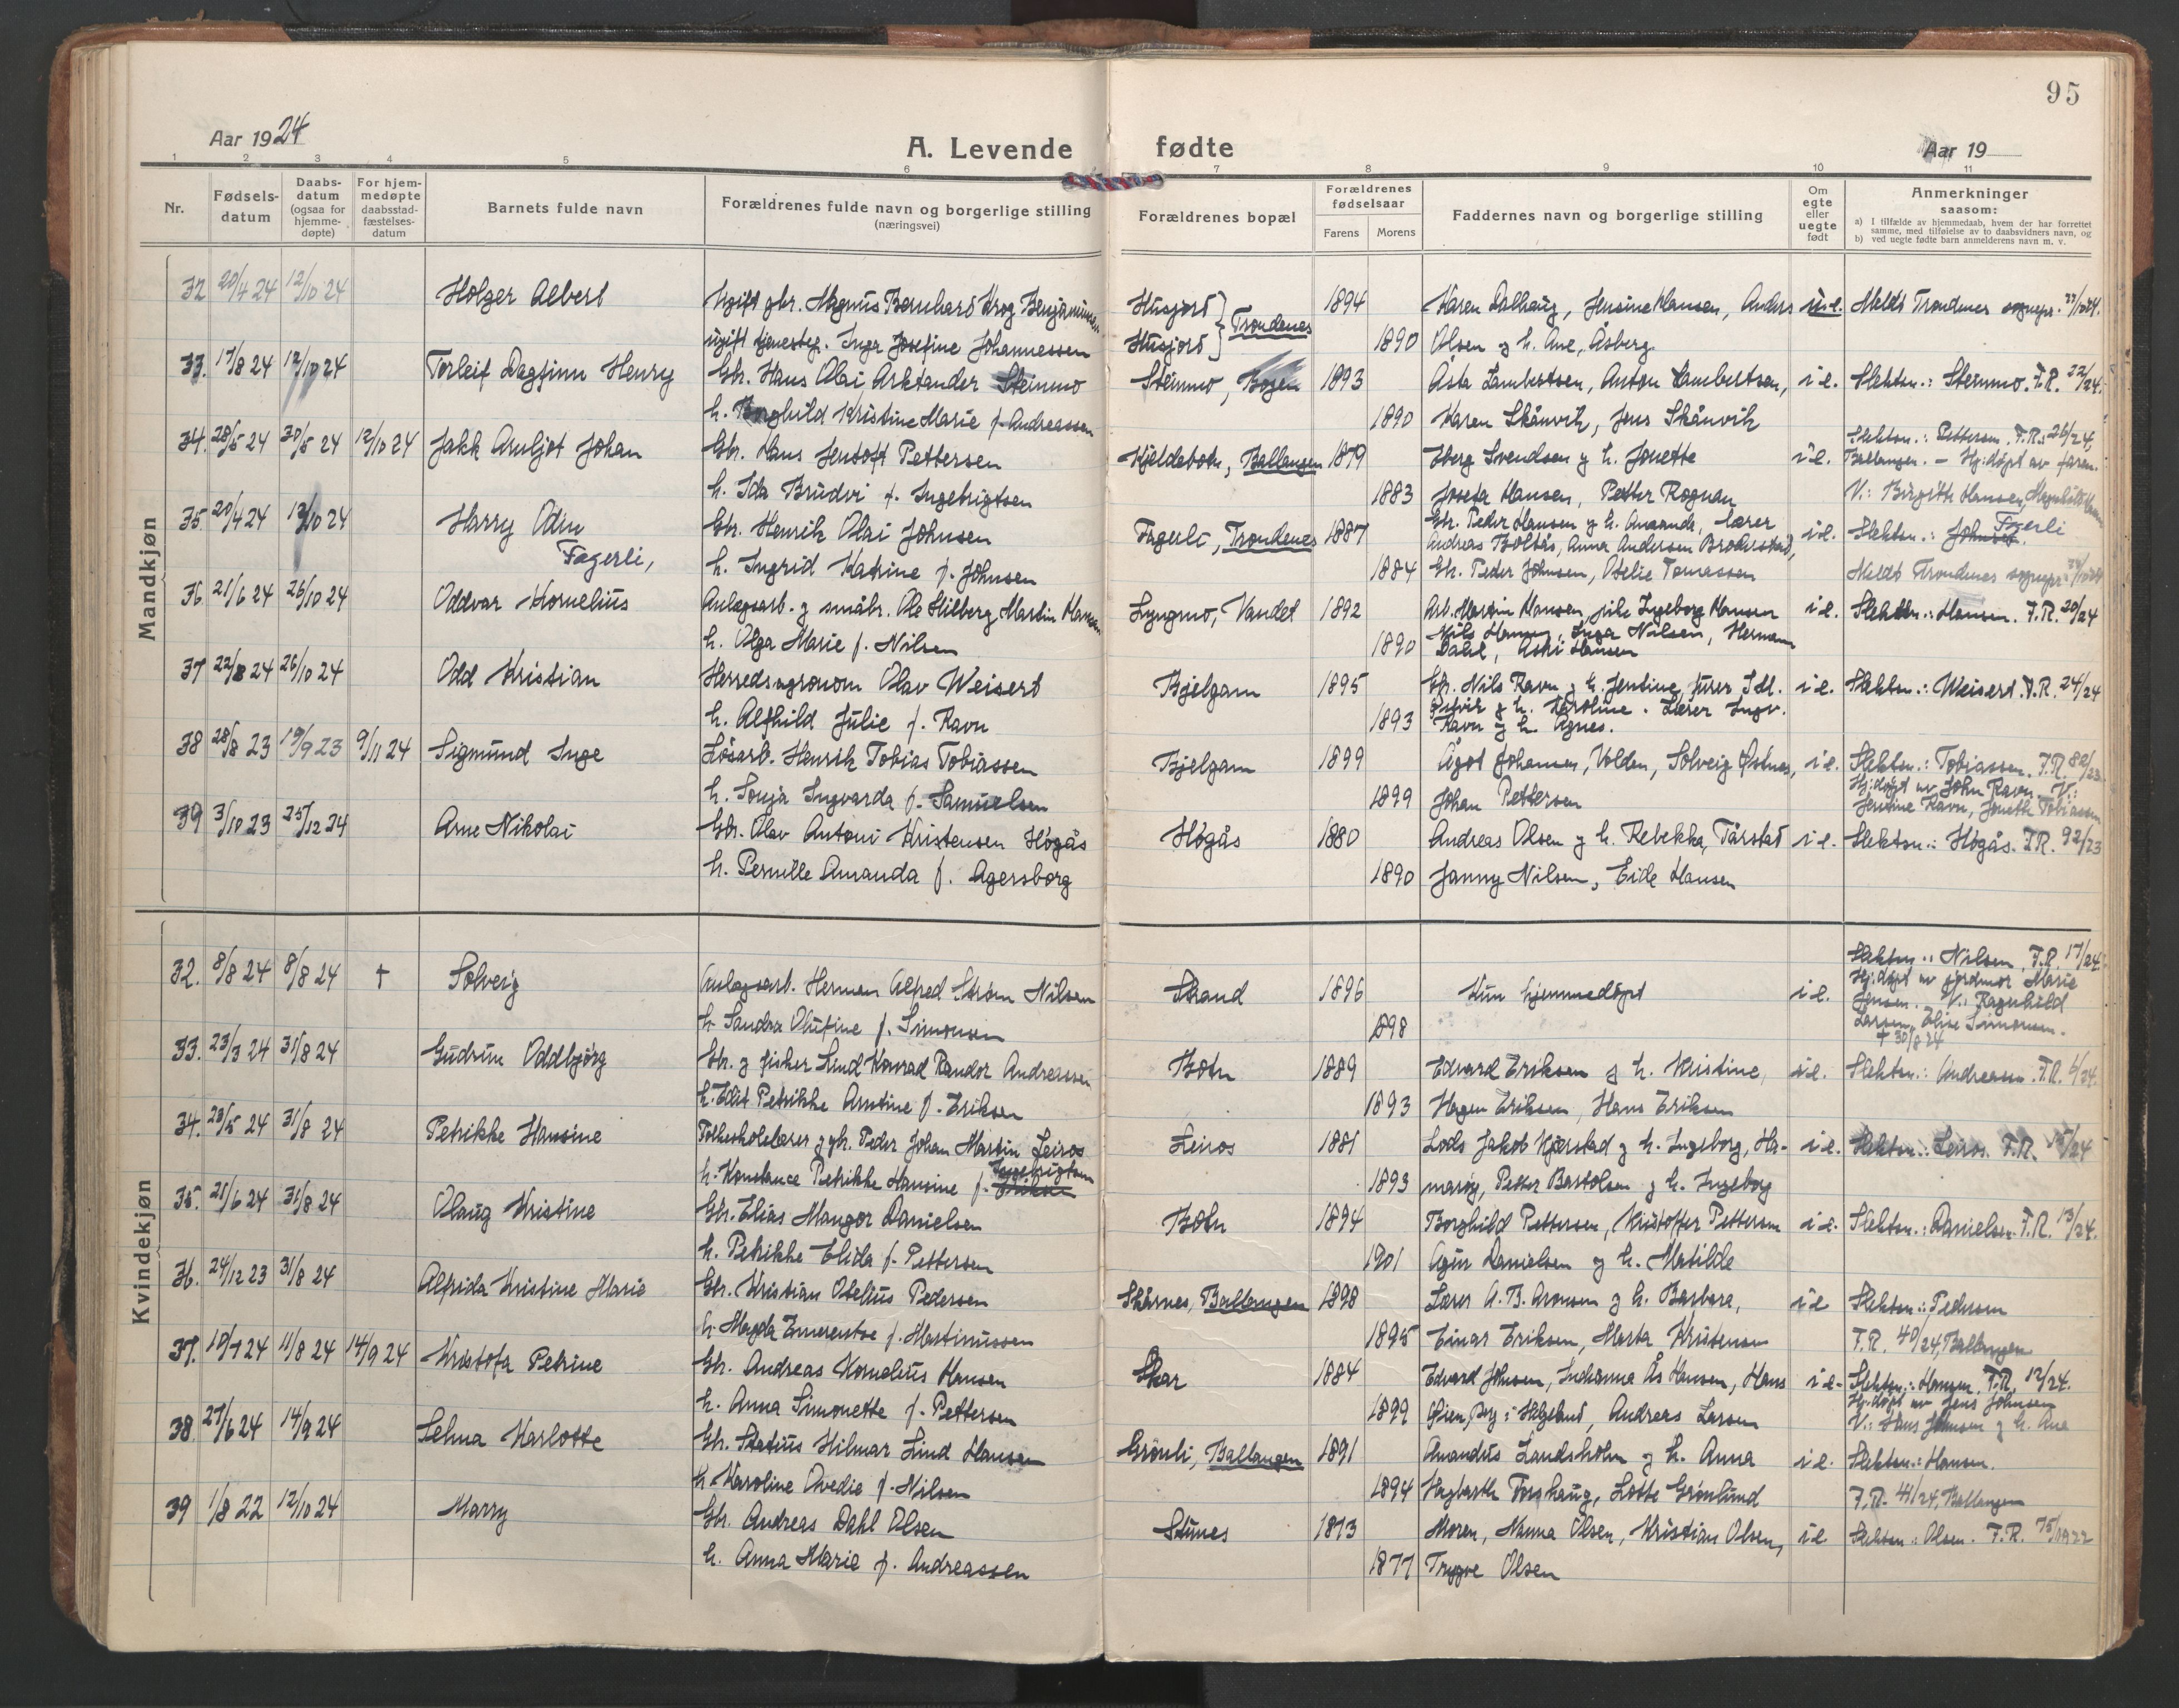 95
Aar 1924
A. Levende fødte
Aar 19
1 2 3 4 5 6 7 8 9 10 11
Nr.
Fødsels-datum
Daabs-datum (ogsaa for hjemme-døpte)
For hjem-medøpte daabsstad-fæstelses-datum
Barnets fulde navn
Forældrenes fulde navn og borgerlige stilling (næringsvei)
Forældrenes bopæl
Forældrenes fødselsaar
Farens Morens
Faddernes navn og borgerlige stilling
Om egte eller uegte født
Anmerkninger saasom:
a) I tilfælde av hjemmedaab, hvem der har forrettet samme, med tilføielse av to daabsvidners navn, og
b) ved uegte fødte barn anmelderens navn m. v.
Mandkjøn
32 20/4 24 12/10 24 Holger Albert Ugift gbr. Magnus Bernhard Krog Benjaminsen Husjord 1894 Karen Dalhaug, Jensine Hansen, Anders u.e. Meldt Trondenes sognepr.
ugift tjenestep. Inga Josefine Johannessen Husjord } Trondenes 1890 Olsen g h. Ane, Åsberg.
33. 17/8 24 12/10 24 Torleif Dagfinn Henry Gbr. Hans Olai Arktander Steinmo Steinmo, Bogen 1893 Åsta Lambertsen, Anton Lambertsen, i.e. Slektsn.: Steinmo. F.R. 22/24.
h. Borghild Kristine Marie f. Andreassen 1890 Karen Skånvik, Jens Skånvik
34. 28/5 24 30/5 24 12/10 24 Jakk Arnljot Johan Gbr. Hans Jentoft Pettersen Kjeldebotn, Ballangen 1879 Iberg Svendsen g h. Jonette i.e. Slektsn.: Pettersen. F.R.: 26/24, Ballangen. – Hj.døpt av faren.
h. Ida Brudvi f. Ingebrigtsen 1883 Josefa Hansen, Petter Rognan V.: Birgitte Hansen,
35. 20/4 24 12/10 24 Harry Odin Fagerli, Gbr. Henrik Olai Johnsen Fagerli, Trondenes 1887 Gbr. Peder Hansen g h. Amanda, lærer Andreas Boltås, Anna Andersen i.e. Slektsn.: Johnsen. Fagerli
h. Ingrid Katrine f. Johnsen 1884 Gbr. Peder Johnsen, Otelie Tomassen Meldt Trondenes sognepr.
36 21/6 24 26/10 24 Oddvar Kornelius Anlægsarb. g småbr. Ole Hilberg Martin Hansen Lyngmo, Vandet 1892 Arb. Martin Hansen, pike Ingeborg Hansen i.e. Slektsn.: Hansen. F.R. 20/24
h. Olga Marie f. Nilsen 1890 Nils Hansen, Inga Nilsen, Hermann Dahl, Hansen
37 22/8 24 26/10 24 Odd Kristian Herredsagronom Olav Weisert Bjelgam 1895 Gbr. Nils Ravn g h. Jentine, i.e. Slektsn.: Weisert. F.R. 24/24
h. Alfhild Julie f. Ravn 1893 g h. Karoline. Lærer Ingv. Ravn g h. Agnes.
38 28/8 23 19/9 23 9/11 24 Sigmund Inge Løsarb. Henrik Tobias Tobiassen Bjelgam 1899 Ågot Johansen, Volden, Solveig Østnes, i.e. Slektsn.: Tobiassen. F.R. 82/23
h. Sonja Ingvarda f. Samuelsen 1899 Johan Pettersen Hj:døpt av John Ravn. V.: Jentine Ravn, Jonette Tobiassen
39 3/10 23 25/12 24 Arne Nikolai Gbr. Olav Antoni Kristensen Høgås Høgås 1880 Andreas Olsen g h. Rebekka, Tårstad i.e. Slektsn.: Høgås. F.R. 92/23
h. Pernille Amanda f. Agersborg 1890 Janny Nilsen, Eide Hansen
Kvindekjøn
32. 8/8 24 8/8 24 † Solveig Anlægsarb. Herman Alfred Strøm Nilsen Strand 1896 Kun hjemmedøpt i.e. Slektsn.: Nilsen, F.R. 17/24.
h. Sandra Olufine f. Simonsen 1898 Hj:døpt av jordmor Marie Jensen. V.: Ragnhild Larsen, Elise Simonsen. † 30/8 24
33. 23/3 24 31/8 24 Gudrun Oddbjørg Gbr. g fisker Lind Konrad Randor Andreassen Botn 1889 Edvard Eriksen g h. Kristine, i.e. Slektsn.: Andreassen. F.R. 6/24.
h. Edit Petrikke Arntine f. Eriksen 1893 Hagen Eriksen, Hans Eriksen
34. 23/5 24 31/8 24 Petrikke Hansine Folkeskolelærer g gbr. Peder Johan Martin Leiros Leiros 1881 Lods Jakob Kjærstad g h. Ingeborg, Ha- i.e. Slektsn.: Leiros. F.R. 15/24
h. Konstance Petrikke Hansine f. Ingebrigtsen 1893 marøy, Petter Bartolsen g h. Ingeborg
35. 21/6 24 31/8 24 Olaug Kristine Gbr. Elias Mangor Danielsen Botn 1894 Borghild Pettersen, Kristoffer Pettersen i.e. Slektsn.: Danielsen. F.R. 13/24.
h. Petrikke Elida f. Pettersen 1901 Danielsen g h. Matilde
36. 24/12 23 31/8 24 Alfrida Kristine Marie Gbr. Kristian Otelius Pedersen Skårnes, Ballangen 1898 Lærer A. B. Aronsen g h. Barbara, i.e Slektsn.: Pedersen
h. Magda Emerentse f. Martinussen 1895 Einar Eriksen, Marta Kristensen F.R. 40/24, Ballangen
37. 10/7 24 11/8 24 14/9 24 Kristofa Petrine Gbr. Andreas Kornelius Hansen Skar 1884 Edvard Johnsen, Indianna Ås Hansen, Hans i.e. Slektsn.: Hansen. F.R. 12/24.
h. Anna Simonette f. Pettersen 1899 Øien, Andreas Larsen Hj:døpt av Jens Johnsen V.: Hans Johnsen g h. Ane
38 27/6 24 14/9 24 Selma Karlotte Gbr. Statius Hilmar Lind Hansen Grønli, Ballangen 1891 Amandus Landsholm g h. Anna i.e. Slektsn.: Hansen.
h. Karoline Ovedie f. Nilsen 1894 Hagbarth Forshaug, Lotte Grønlund F.R. 41/24, Ballangen
39 1/8 22 12/10 24 Marry Gbr. Andreas Dahl Olsen Stunes 1873 Moren, Nanna Olsen, Kristian Olsen, i.e. Slektsn.: Olsen. F.R. 75/1922
h. Anna Marie f. Andreassen 1877 Trygve Olsen